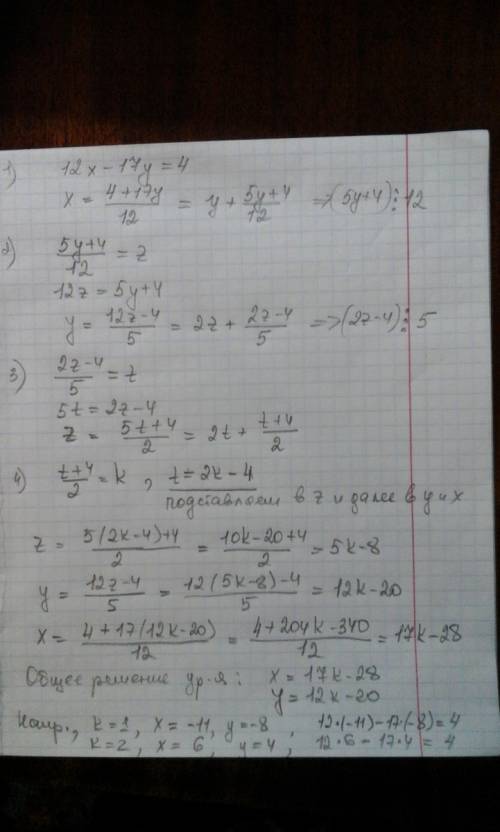 1) 12x - 17y = 4
x = \frac{4+17y}{12} = y + \frac{5y+4}{12} => (5y+4)⋮12
2) \frac{5y+4}{12} = z
12z = 5y+4
y = \frac{12z-4}{5} = 2z + \frac{2z-4}{5} => (2z-4)⋮5
3) \frac{2z-4}{5} = t
5t = 2z-4
z = \frac{5t+4}{2} = 2t + \frac{t+4}{2}
4) \frac{t+4}{2} = k, t = 2k-4
подставляем в z и далее в y и x
z = \frac{5(2k-4)+4}{2} = \frac{10k-20+4}{2} = 5k-8
y = \frac{12z-4}{5} = \frac{12(5k-8)-4}{5} = 12k-20
x = \frac{4+17(12k-20)}{12} = \frac{4+204k-340}{12} = 17k-28
Общее решение ур-я: x = 17k-28
y = 12k-20
Напр., k=1, x=-11, y=-8, 12·(-11)-17·(-8)=4
k=2, x=6, y=4, 12·6-17·4=4